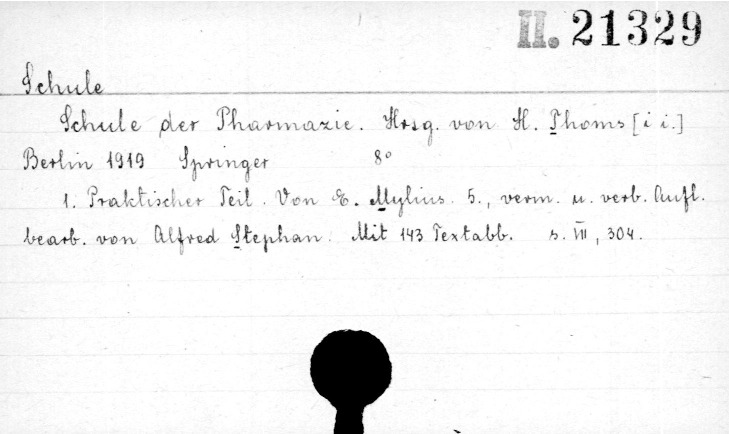 II. 21329
Schule
Schule der Pharmazie. Hrsg. von H. Thoms [i i.]
Berlin 1919 Springer 8°
1. Praktischer Teil. Von E. Mylius. 5., verm. u. verb. Aufl.
bearb. von Alfred Stephan. Mit 143 Textabb. s. VIII, 304.